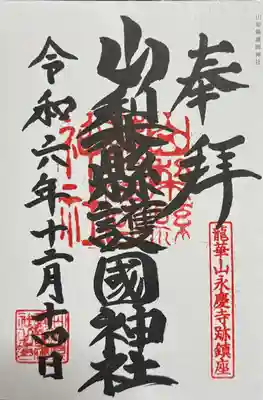 山梨縣護國神社
奉拝
山梨縣護國神社
令和六年十二月十四日
龍華山永慶寺跡鎮座